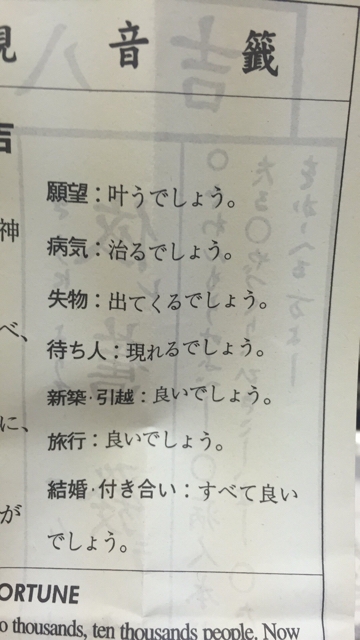 観音籤
吉
神
べ、
に、
が
願望：叶うでしょう。
病気：治るでしょう。
失物：出てくるでしょう。
待ち人：現れるでしょう。
新築・引越：良いでしょう。
旅行：良いでしょう。
結婚・付き合い：すべて良い
でしょう。
ORTUNE
o thousands, ten thousands people. Now